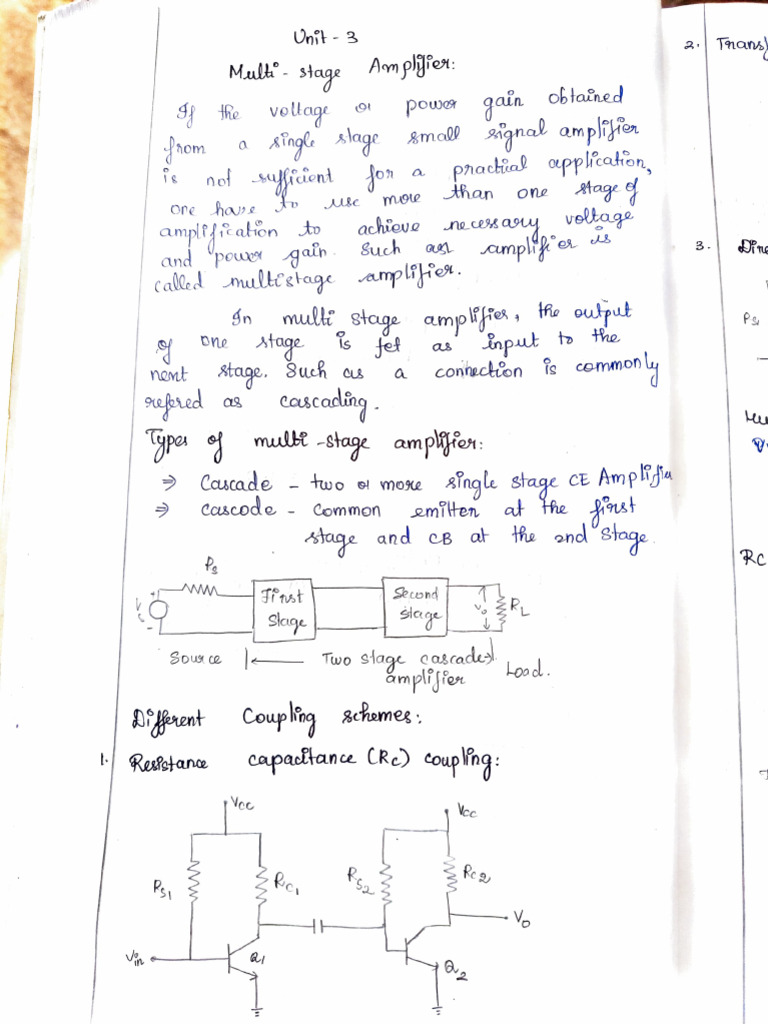 Unit - 3
Multi - stage Amplifier:
If the voltage or power gain obtained
from a single stage small signal amplifier
is not sufficient for a practical application,
one have to use more than one stage of
amplification to achieve necessary voltage
and power gain. Such an amplifier is
called multistage amplifier.
In multi stage amplifier, the output
of one stage is fet as input to the
next stage. Such as a connection is commonly
refered as cascading.
Types of multi-stage amplifier:
⇒ Cascade - two or more single stage CE Amplifier
⇒ cascode - Common emitter at the first
stage and CB at the 2nd stage.
Rs
Vs
First
Stage
Second
stage
Vo
RL
Source
Two stage cascade
amplifier
Load.
Different Coupling schemes:
1. Resistance capacitance (RC) coupling:
Vcc
Vcc
RS1
RC1
RS2
RC2
Vo
Vin
Q1
Q2
2. Transf
3. Dire
Rs
RC